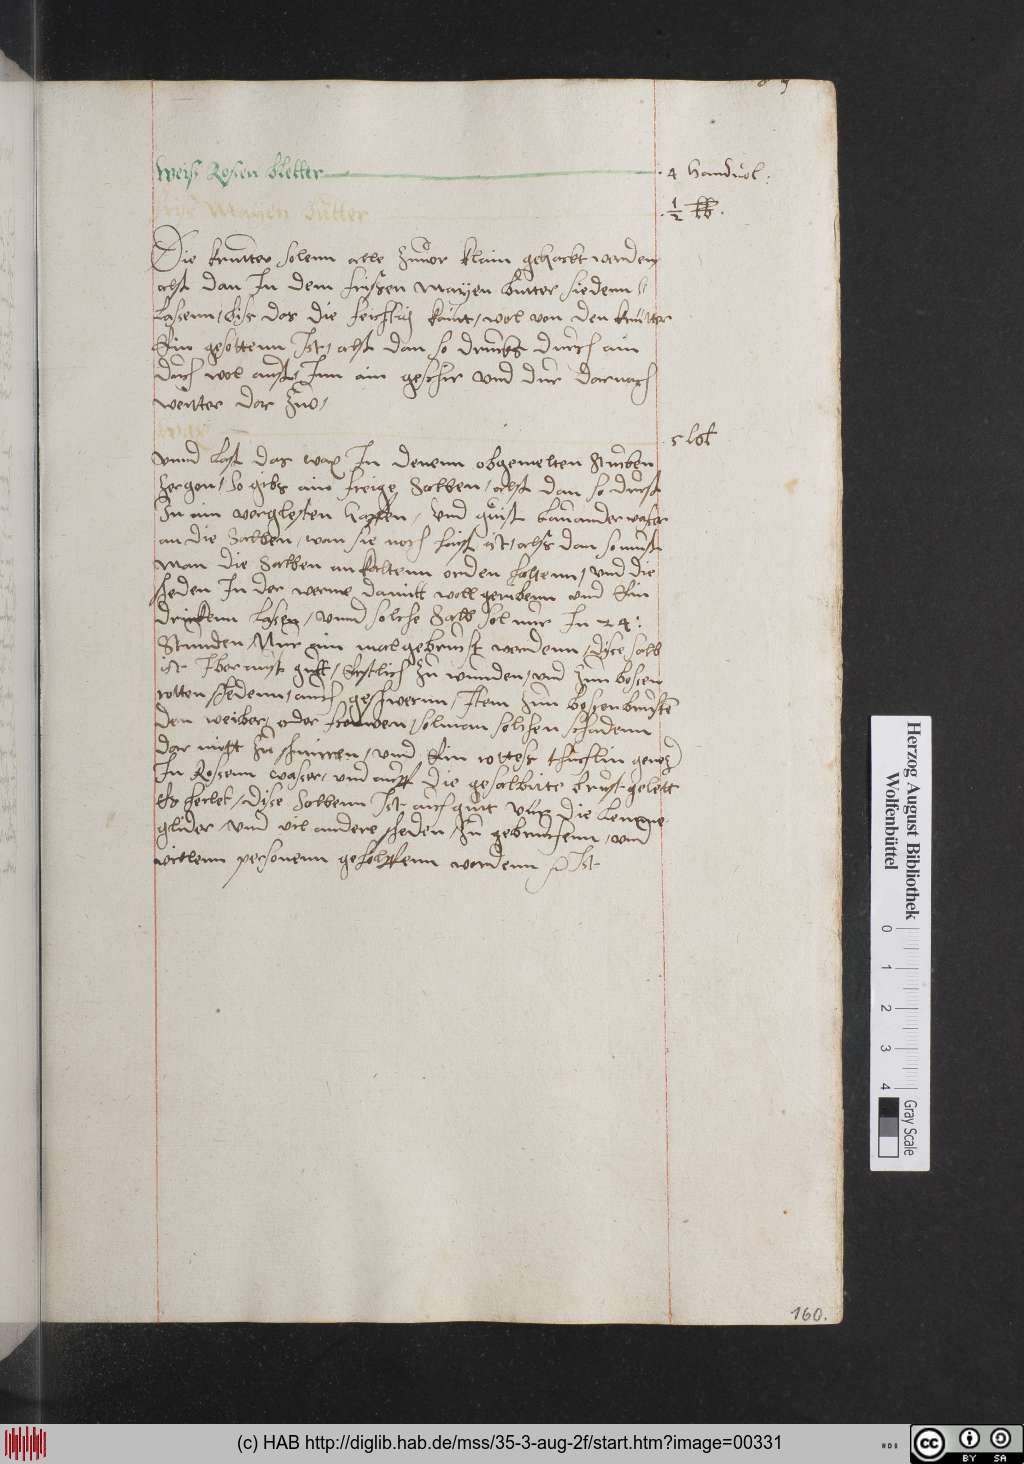 Weiß Rosen bletter 4 handuol:
frisch Mayen butter ½ lb.
Die kreutter solenn alle zuuor klain gehackt werden
alß dan In dem frischen Mayen butter siedenn
lasenn / bis das die feichtig kaitt / wol von den kreutter
Ein gesottenn Ist / alß dan so drucks durch ain
duch wol auß / Inn ain geschir und dur darnach
weitter dar Zuo /
wax 5 lot
vnnd laß das wax In denenn obgemelten stucken
zergon / so gibs ain salben / alß dan so
In ain verglesten haffen / vnd
an die salben / wan sie noch haiß ist / alß dan so muß
man die salben an kaltenn orden haltenn / vnd die
scheden In der werme damitt woll geribenn und Ein
drickenn lasen / vnnd solche salb sol mir In 24:
stunden / Nur ain mal gebrucht werdenn / dise salb
ist guett / Erstlich zu wunden / vnd zun bosen
rotten schedenn / auch geschwernn / Item zun bosen brusten
den weiber / oder frawen / sol man solchen schadenn
dar mitt zu schmirren / vnnd Ein rottes thuchlin genetz
In Rosenn waser / vnd auff die gesalbitte brust gelett
Es heilet / dise salbenn Ist auch gutt vur die lemme
glider / vnd vil andere scheden / zu gebruchenn / vnd
villenn personenn geholffenn wordenn Ist
160.
Herzog August Bibliothek
Wolfenbüttel
0 1 2 3 4
Gray Scale
(c) HAB http://diglib.hab.de/mss/35-3-aug-2f/start.htm?image=00331
HAB
cc BY SA